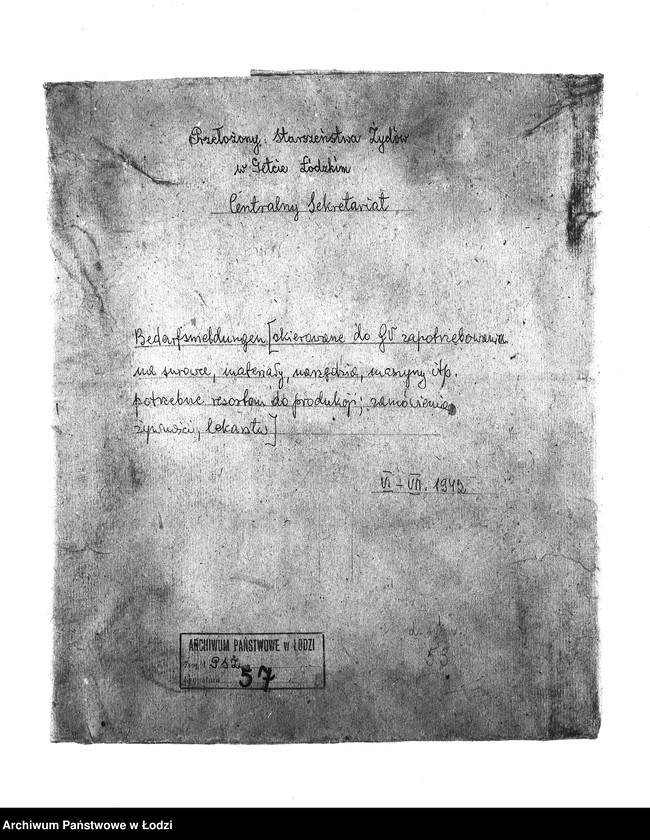 Przełożony Starszeństwa Żydów
w Getcie Łódzkim
Centralny Sekretariat
Bedarfsmeldungen [skierowane do GV zapotrzebowania
na surowce, materiały, narzędzia, maszyny itp.
potrzebne resortom do produkcji; zamówienia
żywności, lekarstw]
VI - VII. 1942
ARCHIWUM PAŃSTWOWE w ŁODZI
Zespół PSŻ
Sygnatura 57
53
Archiwum Państwowe w Łodzi